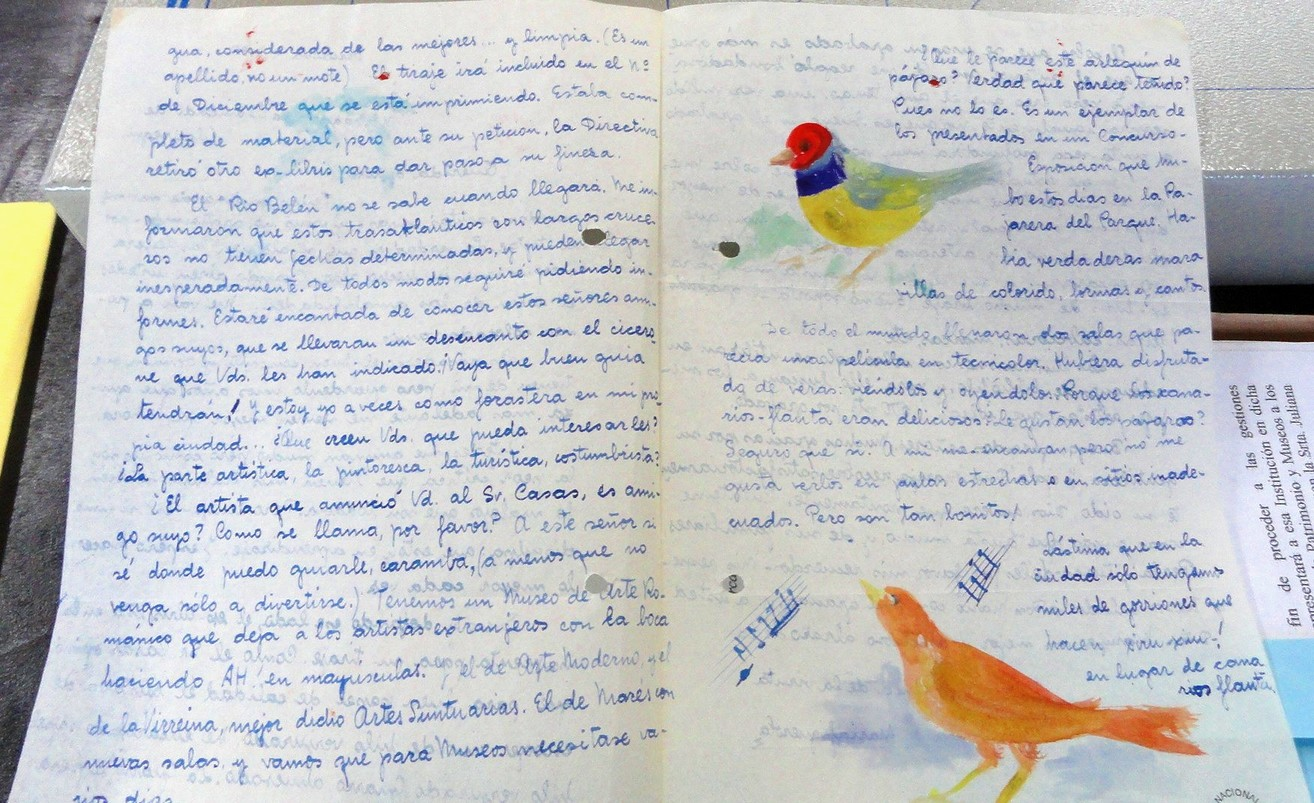 gua, considerada de las mejores... y limpia. (Es un
apellido, no un mote) El tiraje irá incluido en el nº
de Diciembre que se está imprimiendo. Estaba com-
pleto de material, pero ante su peticion, la Directiva
retiró otro ex-libris para dar paso a su fineza.
El "Rio Belén" no se sabe cuando llegará. Me in-
formaron que estos trasatlanticos con largos cruce-
ros no tienen fechas determinadas, y pueden llegar
inesperadamente. De todos modos seguiré pidiendo in-
formes. Estaré encantada de conocer estos señores ami-
gos suyos, que se llevaran un desencanto con el cicero
ne que Vds. les han indicado. ¡Vaya que buen guia
tendran! Y estoy yo a veces como forastera en mi pro
pia ciudad... ¿Que creen Vds. que pueda interesarles?
¿La parte artística, la pintoresca, la turística, costumbrista?
¿El artista que anunció Vd. al Sr. Casas, es ami-
go suyo? Como se llama, por favor? A este señor si
sé donde puedo guiarle, caramba, (a menos que no
venga sólo a divertirse.) Tenemos un Museo de Arte Ro-
mánico que deja a los artistas extranjeros con la boca
haciendo AH! en mayusculas. Y el de Arte Moderno, y el
de la Virreina, mejor dicho Artes Suntuarias. El de Marés con
nuevas salas, y vamos que para Museos necesitase va-
rios dias
¿Que le parece este arlequin de
pájaro? Verdad que parece teñido?
Pues no lo es. Es un ejemplar de
los presentados en un Concurso-
Exposición que hu-
bo estos dias en la Pa-
jarera del Parque. Ha-
bia verdaderas mara
villas de colorido, formas y cantos.
De todo el mundo, llenaron dos salas que pa-
recia una pelicula en tecnicolor. Hubiera disfruta-
do de veras viéndolos y oyéndolos. Porque los cana-
rios-flauta eran deliciosos. ¿Le gustan los pájaros?
Seguro que si. A mi me encantan pero no me
gusta verlos en jaulas estrechas o en sitios inade-
cuados. Pero son tan bonitos!
Lástima que en la
ciudad sólo tengamos
miles de gorriones que
hacen xiru-xiru!
en lugar de cana
rios flauta.
fin de proceder a las gestiones
presentará a esa Institución en dicha
Patrimonio y Museos a los
la Srta. Juliana
NACIONAL